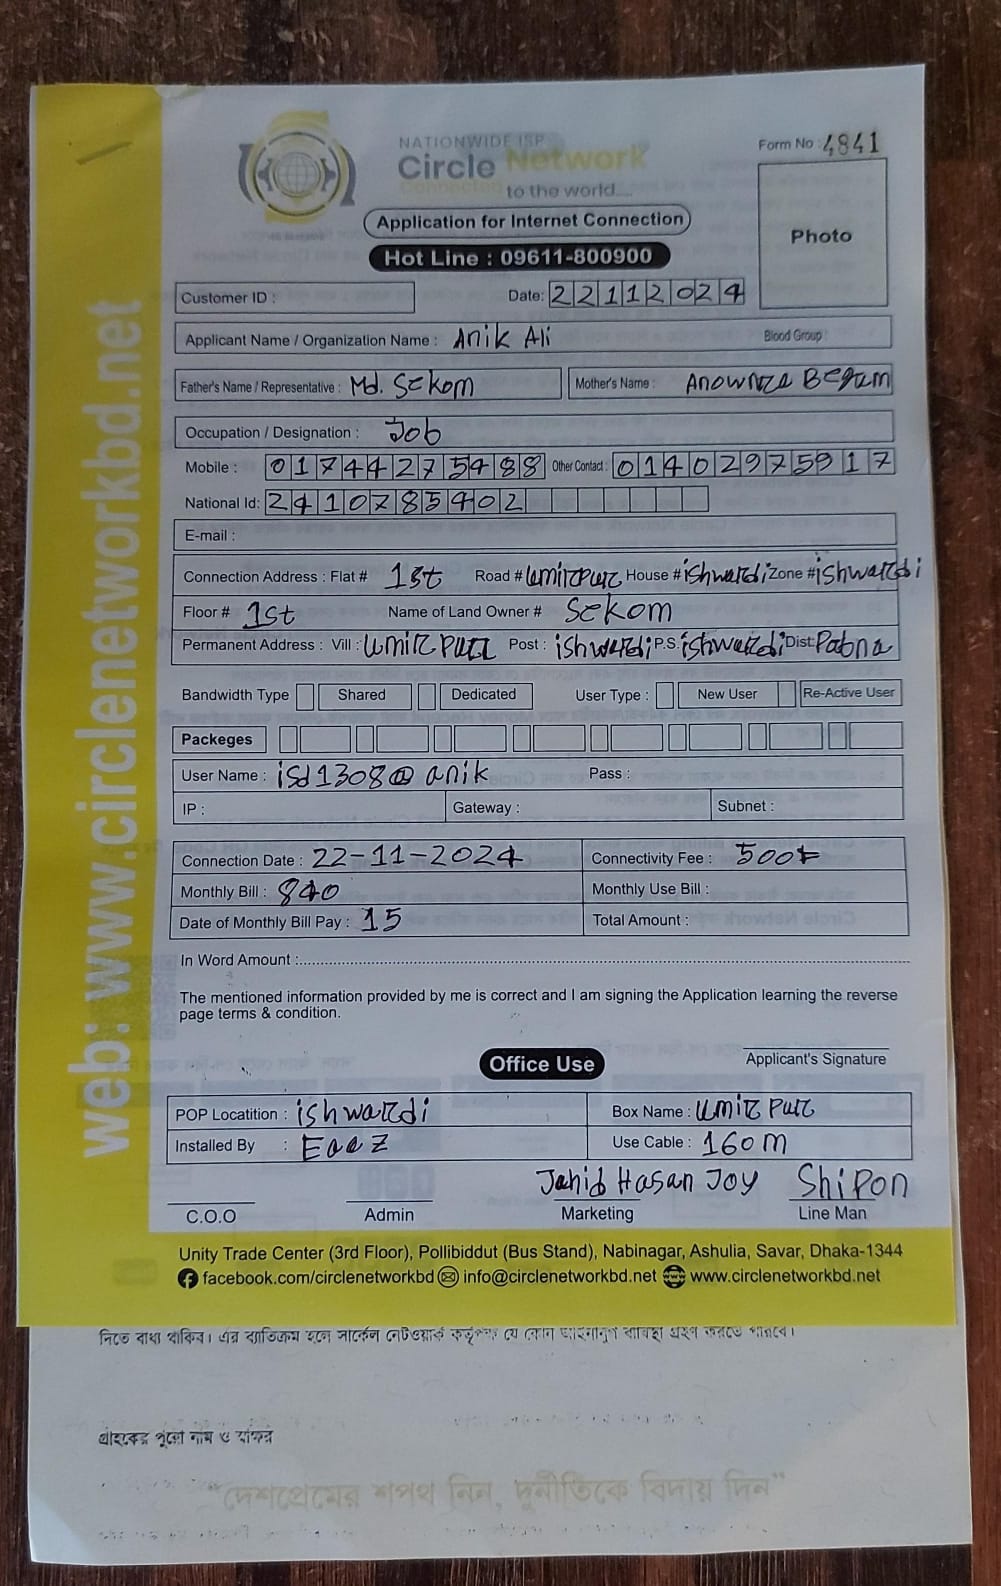 NATIONWIDE ISP
Circle Network
Connected to the world....
Form No : 4841
Photo
Application for Internet Connection
Hot Line : 09611-800900
Customer ID :
Date: 22112024
Applicant Name / Organization Name : Anik Ali Blood Group :
Father's Name / Representative : Md. Sekom Mother's Name : Begum
Occupation / Designation : Job
Mobile : 01744275488 Other Contact : 01402975917
National Id: 2410785402
E-mail :
Connection Address : Flat # 1st Road # Umirpur House # ishwardi Zone # ishwardi
Floor # 1st Name of Land Owner # Sekom
Permanent Address : Vill : Umirpur Post : ishwardi P.S: ishwardi Dist: Pabna
Bandwidth Type Shared Dedicated User Type : New User Re-Active User
Packeges
User Name : isd1308@anik Pass :
IP : Gateway : Subnet :
Connection Date : 22-11-2024 Connectivity Fee : 500৳
Monthly Bill : 840 Monthly Use Bill :
Date of Monthly Bill Pay : 15 Total Amount :
In Word Amount :
The mentioned information provided by me is correct and I am signing the Application learning the reverse
page terms & condition.
Applicant's Signature
Office Use
POP Locatition : ishwardi Box Name : Umirpur
Installed By : Use Cable : 160m
Jahid Hasan Joy Shipon
C.O.O Admin Marketing Line Man
web: www.circlenetworkbd.net
Unity Trade Center (3rd Floor), Pollibiddut (Bus Stand), Nabinagar, Ashulia, Savar, Dhaka-1344
facebook.com/circlenetworkbd info@circlenetworkbd.net www.circlenetworkbd.net
দিতে বাধ্য থাকিব। এর ব্যতিক্রম হলে সার্কেল নেটওয়ার্ক কর্তৃপক্ষ যে কোন আইনানুগ ব্যবস্থা গ্রহণ করতে পারবে।
গ্রাহকের পুরো নাম ও স্বাক্ষর
"দেশপ্রেমের শপথ নিন, দুর্নীতিকে বিদায় দিন"